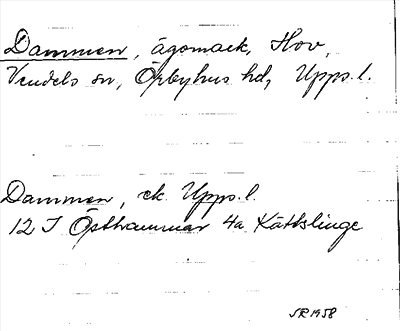 Dammen, ägomark, Hov,
Vendels sn, Örbyhus hd, Upps. l.
Dammen, ek. Upps. l.
12 I Östhammar 4a Kättslinge
SR 1958